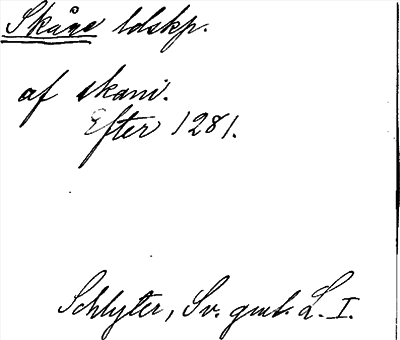 Skåne ldskp.
af skani.
Efter 1281.
Schlyter, Sv. gml. L. I.